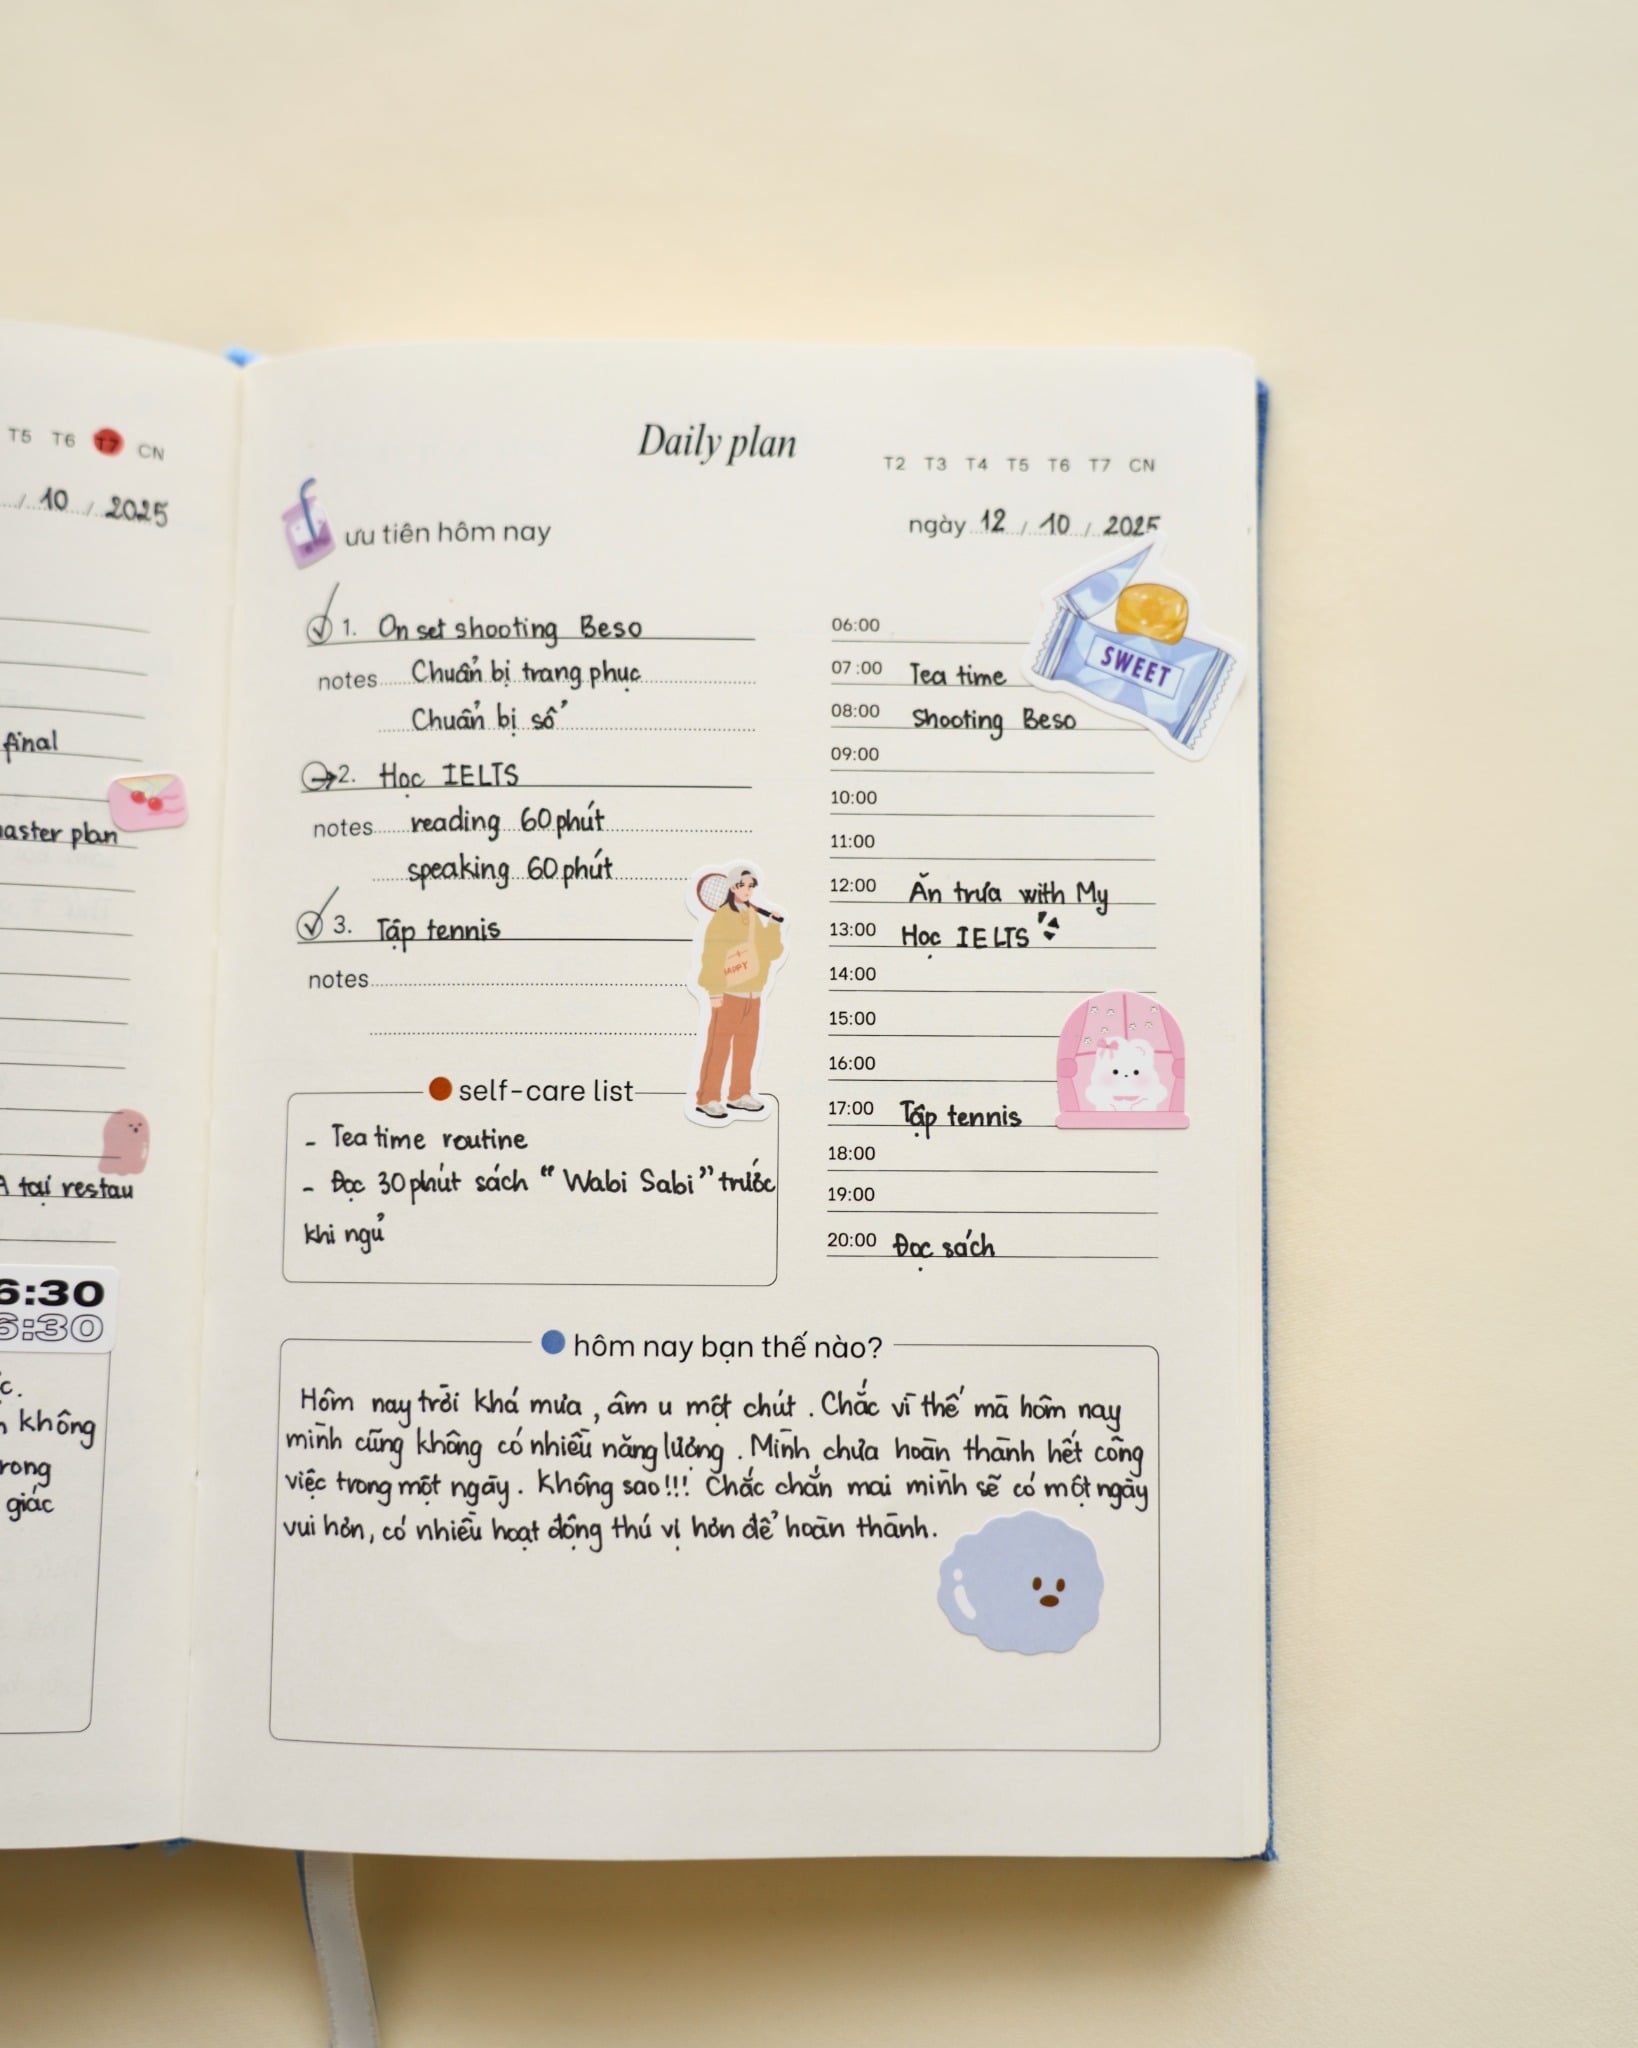 T5 T6 T7 CN
/ 10 / 2025
final
master plan
tại restau
6:30
6:30
c.
không
rong
giác
Daily plan
T2 T3 T4 T5 T6 T7 CN
ưu tiên hôm nay
ngày 12 / 10 / 2025
1. On set shooting Beso
notes Chuẩn bị trang phục
Chuẩn bị sổ
2. Học IELTS
notes reading 60 phút
speaking 60 phút
3. Tập tennis
notes
HAPPY
self-care list
- Tea time routine
- Đọc 30 phút sách “Wabi Sabi” trước
khi ngủ
SWEET
06:00
07:00 Tea time
08:00 Shooting Beso
09:00
10:00
11:00
12:00 Ăn trưa with My
13:00 Học IELTS
14:00
15:00
16:00
17:00 Tập tennis
18:00
19:00
20:00 Đọc sách
hôm nay bạn thế nào?
Hôm nay trời khá mưa, âm u một chút. Chắc vì thế mà hôm nay
mình cũng không có nhiều năng lượng. Mình chưa hoàn thành hết công
việc trong một ngày. Không sao!!! Chắc chắn mai mình sẽ có một ngày
vui hơn, có nhiều hoạt động thú vị hơn để hoàn thành.